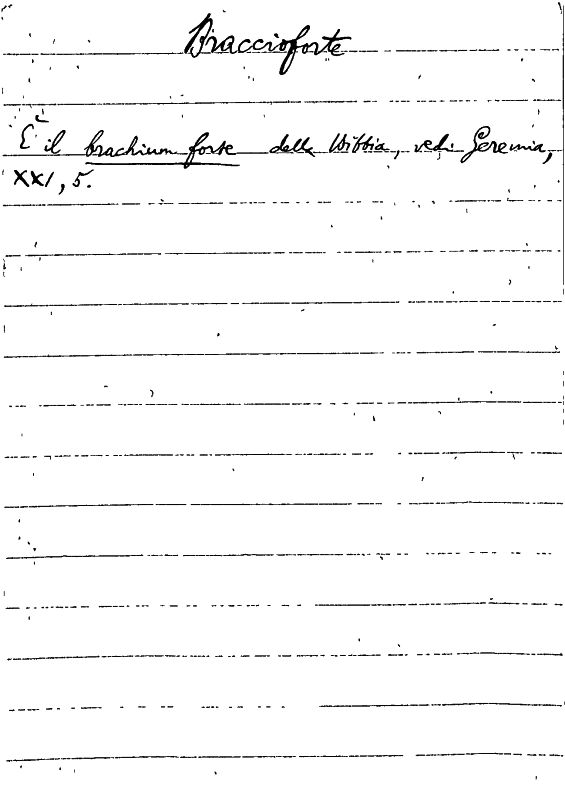 Braccioforte
È il brachium forte della Bibbia, vedi Geremia,
XXI, 5.